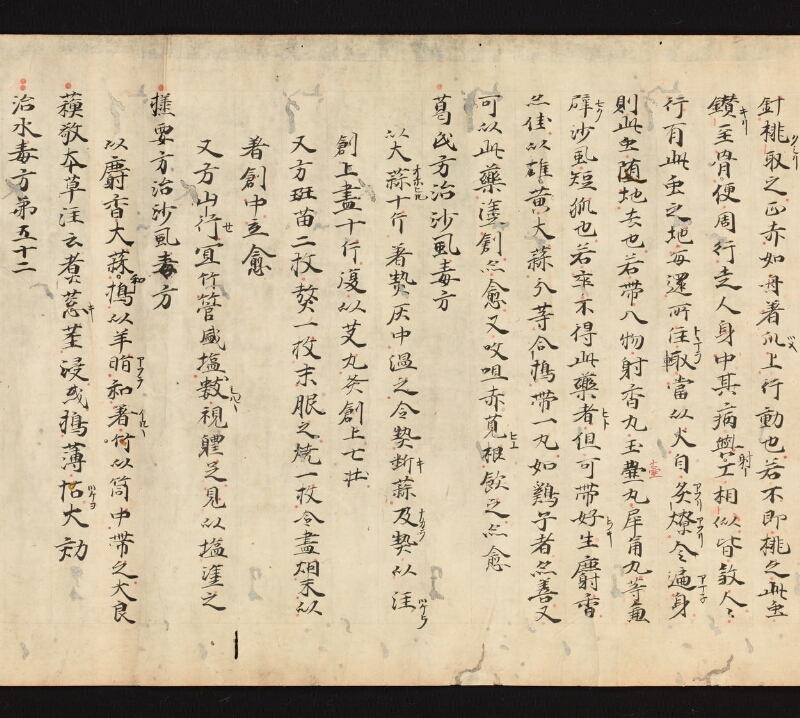 針桃取之正赤如丹著爪上行動也若不即桃之此虫
鑽至骨便周行走人身中其病與射工相似皆煞人〻
行有此虫之地每還所住輙當以火自炙燎令遍身
則此虫随地去也若帶八物射香丸玉壷丸犀角丸等兼
辟沙虱短狐也若卒不得此藥者但可帶好生麝香
亦佳以雄黄大蒜分等合搗帶一丸如鷄子者亦善又
可以此藥塗創亦愈又㕮咀赤莧根飲之亦愈
葛氏方治沙虱毒方
以大蒜十斤著熱灰中温之令熱断蒜及熱以注
創上盡十斤復以艾丸灸創上七壮
又方斑苗二枚熬一枚末服之燒一枚令盡烟末以
著創中立愈
又方山行宜竹管盛塩數視體足見以塩塗之
搓要方治沙虱毒方
以麝香大蒜和搗以羊脂和著小筒中帶之大良
蘓敬本草注云煮葱茎浸或搗薄怗大効
治水毒方第五十二